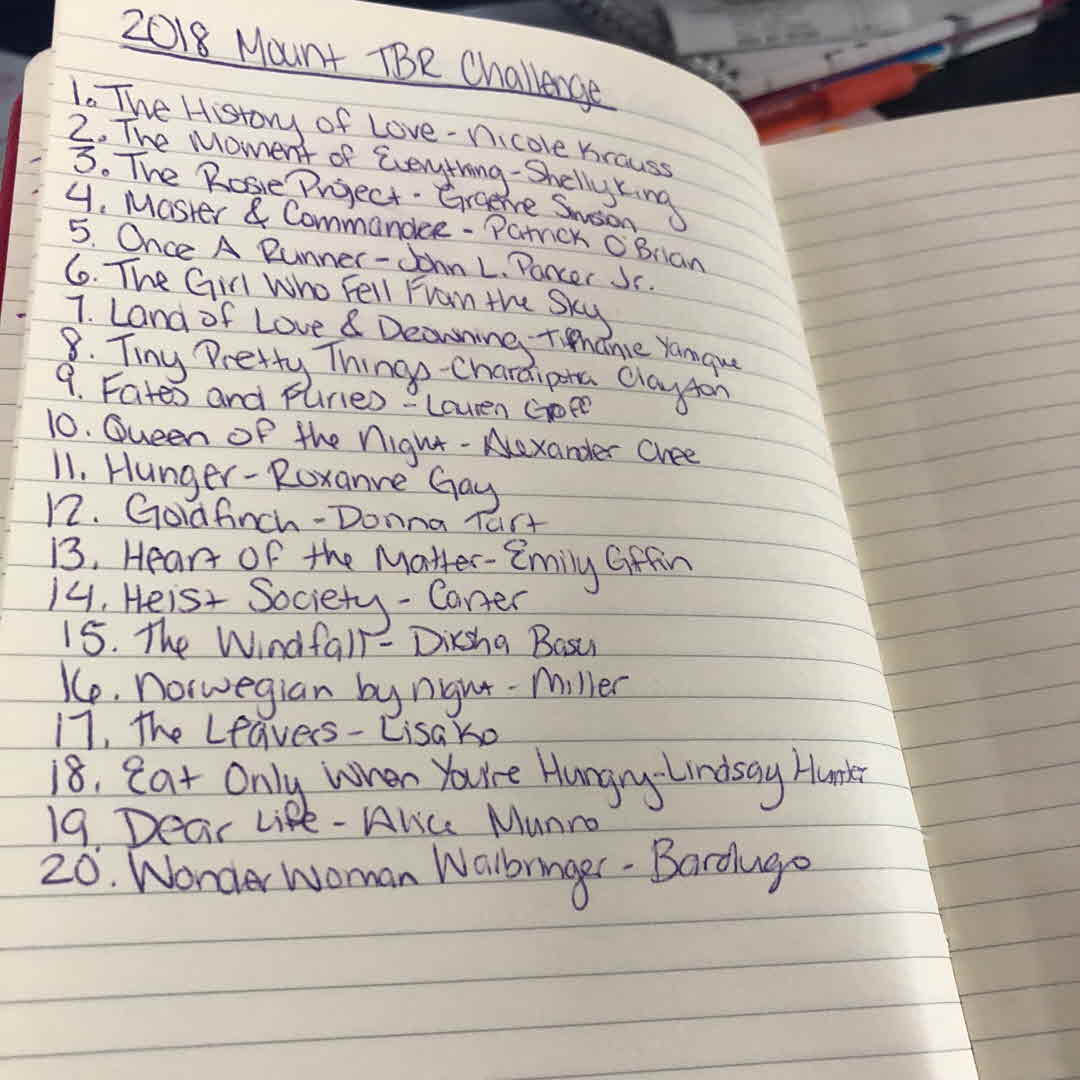 2018 Mount TBR Challenge
1. The History of Love - Nicole Krauss
2. The Moment of Everything - Shelly King
3. The Rosie Project - Graeme Simsion
4. Master & Commander - Patrick O'Brian
5. Once A Runner - John L. Parker Jr.
6. The Girl Who Fell From the Sky
7. Land of Love & Drowning - Tiphanie Yanique
8. Tiny Pretty Things - Clayton
9. Fates and Furies - Lauren Groff
10. Queen of the Night - Alexander Chee
11. Hunger - Roxanne Gay
12. Goldfinch - Donna Tart
13. Heart of the Matter - Emily Giffin
14. Heist Society - Carter
15. The Windfall - Diksha Basu
16. Norwegian by night - Miller
17. The Leavers - Lisa Ko
18. Eat Only When You're Hungry - Lindsay Hunter
19. Dear Life - Alice Munro
20. Wonder Woman Walbringer - Bardugo